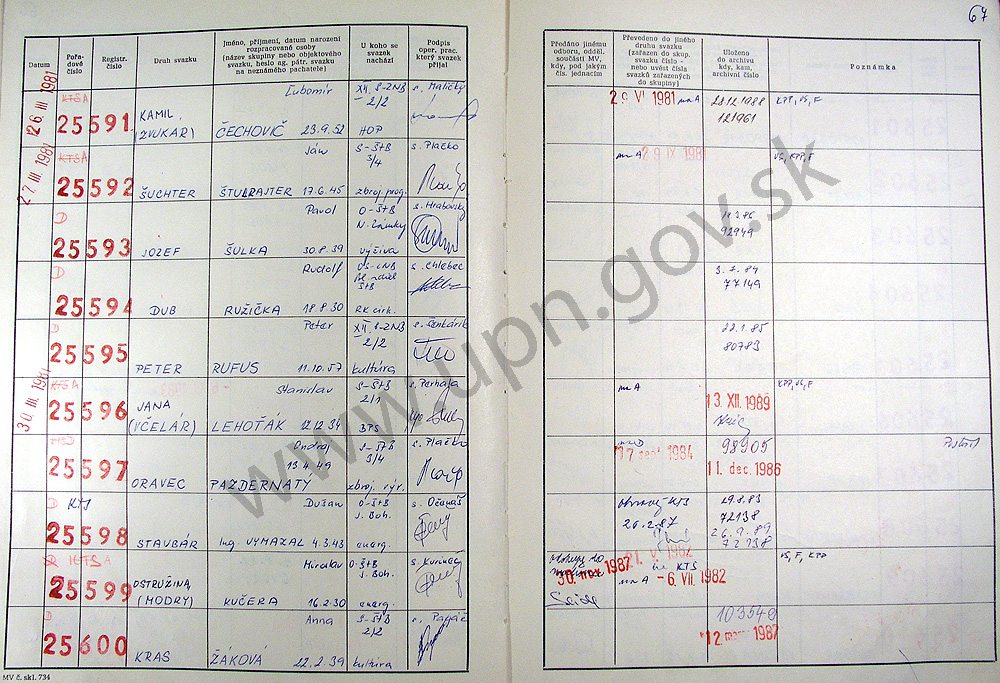 67
Datum
Pořadové číslo
Registr. číslo
Druh svazku
Jméno, příjmení, datum narození rozpracované osoby (název skupiny nebo objektového svazku, heslo ag. pátr. svazku na neznámého pachatele)
U koho se svazek nachází
Podpis oper. prac. který svazek přijal
Předáno jinému odboru, odděl. součásti MV, kdy, pod jakým čís. jednacím
Převedeno do jiného druhu svazku (zařazen do skup. svazku číslo - nebo uvést čísla svazků zařazených do skupiny)
Uloženo do archivu kdy, kam, archivní číslo
Poznámka
26. III 1981
KTSA
25591
KAMIL, (ZVUKÁR)
Ľubomír
ČECHOVIČ 23.9.52
XII. S-ZNB 2/2
HOP
s. Maličký
29 VI 1981 na A
28.12.1988
121961
KPP, VŠ, F
27 III 1981
KTSA
25592
ŠUCHTER
Ján
ŠTULRAJTER 17.6.45
S-ŠTB 3/4
zbroj. prog.
s. Plačko
na A 29 IX 1981
VŠ, KPP, F
D
25593
JOZEF
Pavol
ŠULKA 30.8.39
O-ŠTB N. Zámky
výživa
s. Hrabovský
92949
D
25594
DUB
Rudolf
RUŽIČKA 18.8.30
ŠTB
RK cirk.
s. Chlebec
3.7.84
77149
D
25595
PETER
Peter
RUFUS 11.10.57
XII. S-ZNB 2/2
kultúra
22.1.85
80783
30 III 1981
KTSA
25596
JANA (VČELÁR)
Stanislav
LEHOŤÁK 12.12.34
S-ŠTB 2/1
BPS
s. Perhala
na A
13 XII. 1989
KPP, VŠ, F
25597
ORAVEC
Ondrej
13.4.49
PAZDERNATY
S-ŠTB 3/4
zbroj. výr.
s. Plačko
na D
17 sept 1984
98905
11 dec. 1986
D KTS
25598
STAVBÁR
Dušan
Ing. VYMAZAL 4.3.43
O-ŠTB J. Boh.
energ.
s. Očenáš
KTS
26.2.87
29.8.83
72138
26.9.89
72138
D KTSA
25599
OSTRUŽINA (MODRY)
Miroslav
KUČERA 16.2.30
O-ŠTB J. Boh.
energ.
30. nov. 1987
21. V. 1982
KTS
na A - 6. VII. 1982
VŠ, F, KPP
D
25600
KRAS
Anna
ŽÁKOVA 22.2.39
S-ŠTB 2/2
kultúra
103549
12. 1987
MV č. skl. 734
www.upn.gov.sk